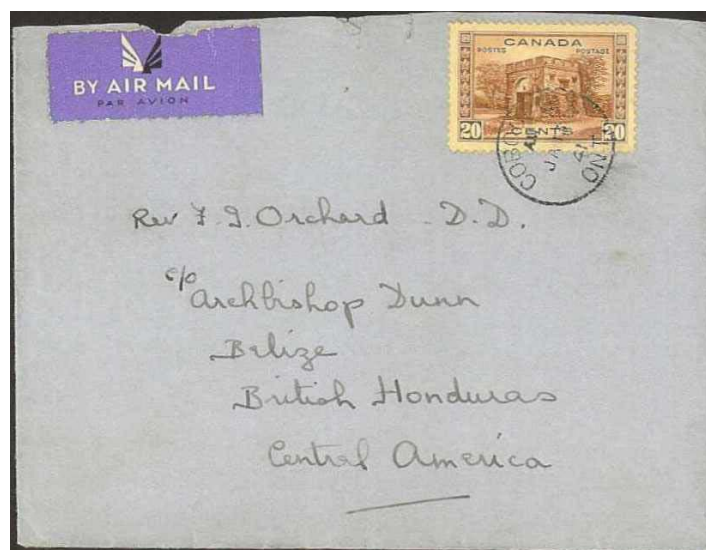 BY AIR MAIL
PAR AVION
CANADA
POSTES POSTAGE
20 20
COBO
AM
JA
41
ONT
Rev F. G. Orchard D.D.
c/o
Archbishop Dunn
Belize
British Honduras
Central America